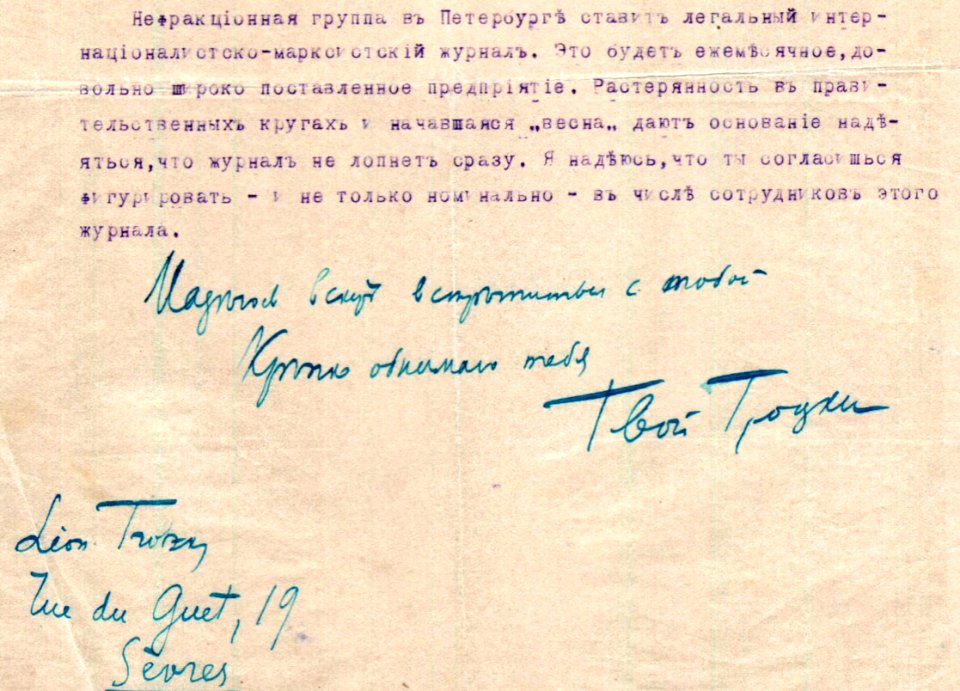 Нефракціонная группа въ Петербургѣ ставитъ легальный интер-
націоналистско-марксистскій журналъ. Это будетъ ежемѣсячное,до-
вольно широко поставленное предпріятіе. Растерянность въ прави-
тельственныхъ кругахъ и начавшаяся „весна„ даютъ основаніе надѣ-
яться,что журналъ не лопнетъ сразу. Я надѣюсь,что ты согласишься
фигурировать - и не только номинально - въ числѣ сотрудниковъ этого
журнала.
Надѣюсь встрѣтиться с тобой
Крѣпко обнимаю тебя
Твой Троцки
Léon Trotzky
Rue du Guet, 19
Sèvres